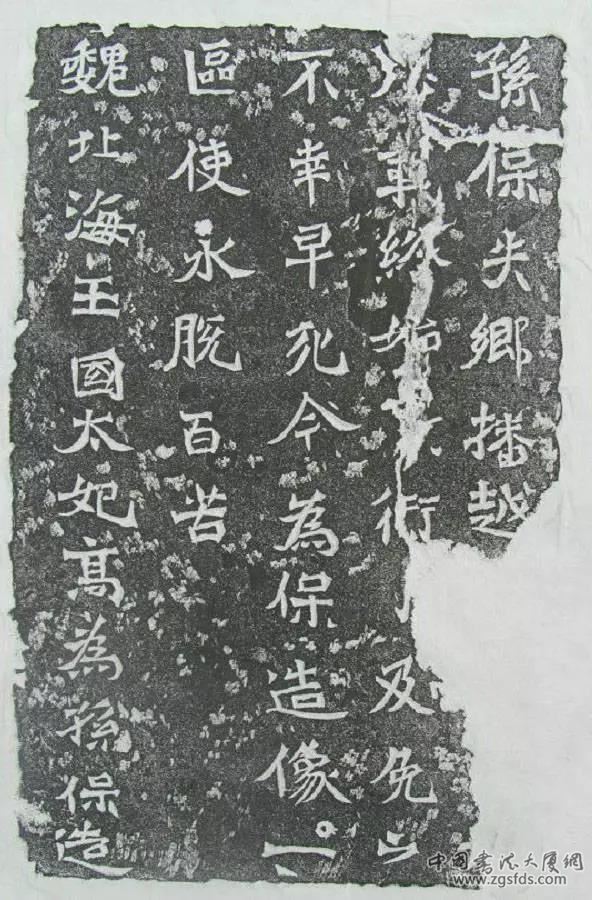 孫保失鄉播越
事終始衍及免
不幸早死今為保造像一
區使永脫百苦
魏北海王國太妃高為孫保造
中国书法大厦網
www.zgsfds.com